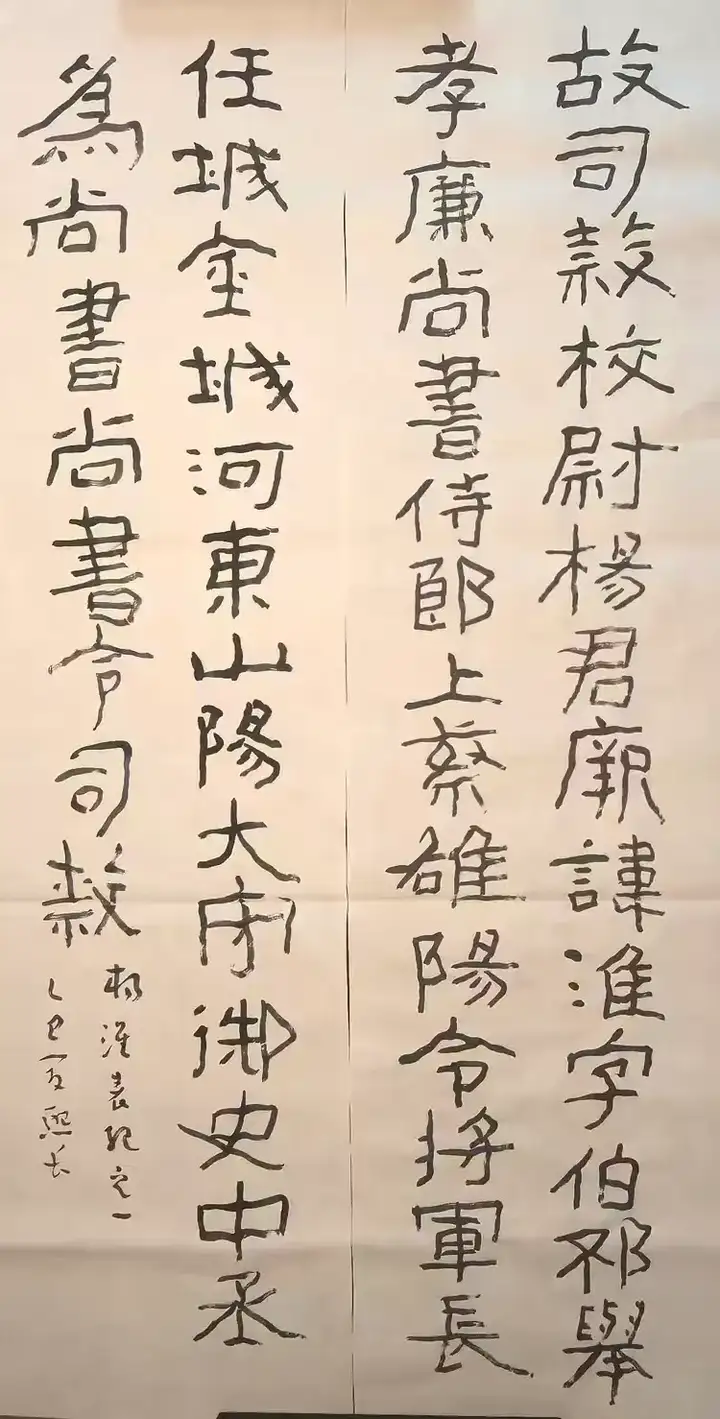 故司隸校尉楊君厥諱淮字伯邳舉
孝廉尚書侍郎上蔡雒陽令將軍長
任城金城河東山陽大守御史中丞
為尚書尚書令司隸
楊淮表紀之一
乙巳夏熙長